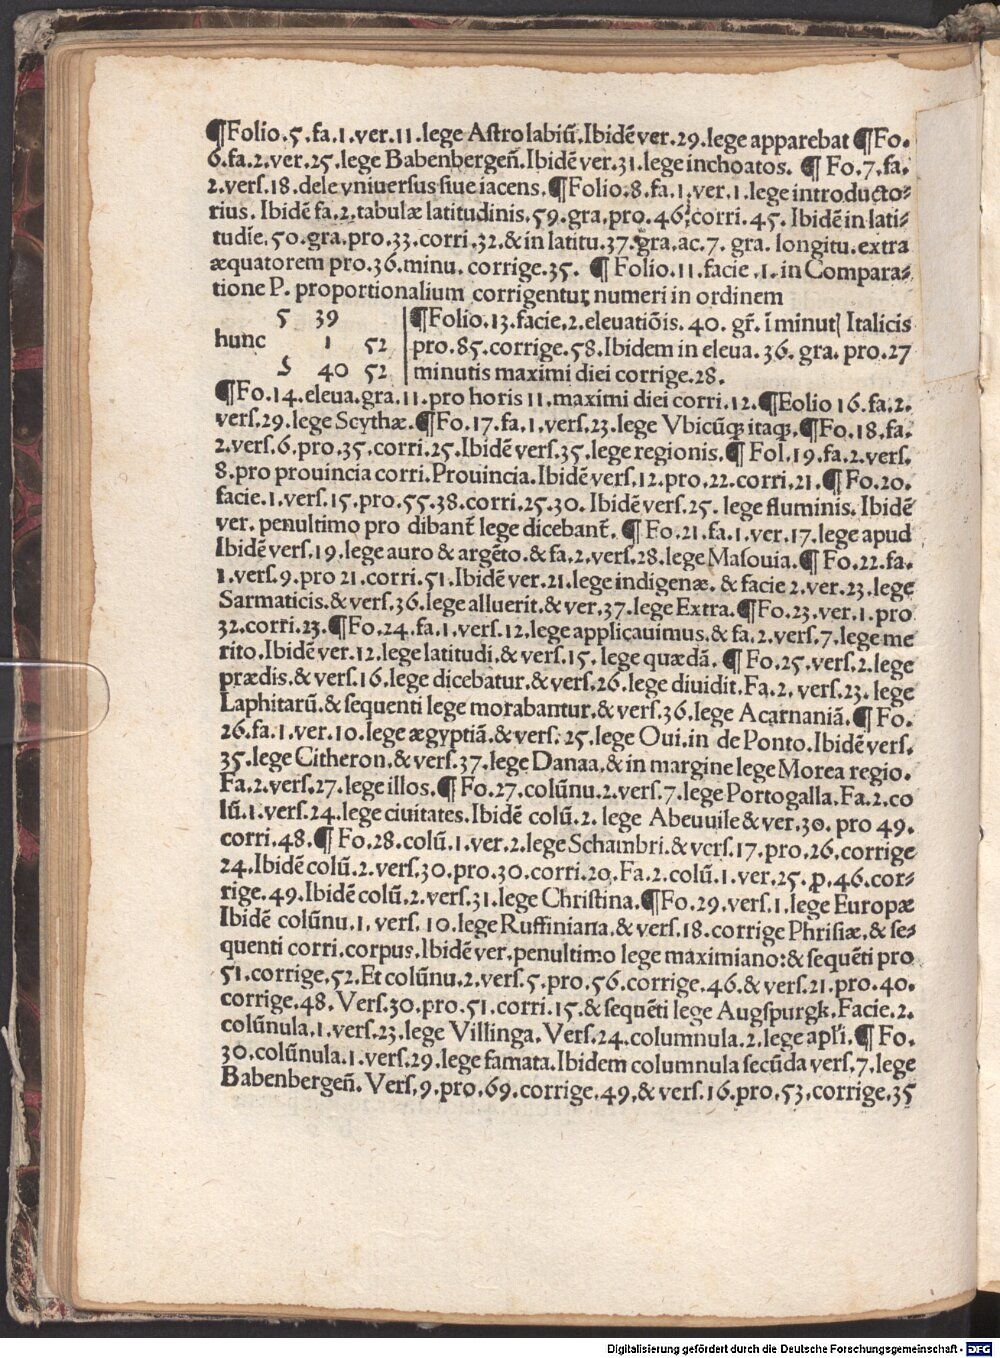 ¶Folio.5.fa.1.ver.11.lege Aſtrolabiũ.Ibidẽ ver.29.lege apparebat ¶Fo.
6.fa.2.ver.25.lege Babenbergeñ.Ibidẽ ver.31.lege inchoatos. ¶ Fo.7.fa.
2.verſ.18.dele vniuerſus ſiue iacens.¶Folio.8.fa.1.ver.1.lege introducto-
rius. Ibidẽ fa.2.tabulæ latitudinis.59.gra.pro.46.corri.45. Ibidẽ in lati-
tudĩe.50.gra.pro.33.corri.32.& in latitu.37.gra.ac.7. gra. longitu.extra
æquatorem pro.36.minu. corrige.35. ¶ Folio.11.facie.1.in Compara-
tione P. proportionalium corrigentur numeri in ordinem
5 39
hunc 1 52
5 40 52
¶Folio.13.facie.2.eleuatiõis.40. gr̃. ĩ minutꝭ Italicis
pro.85.corrige.58.Ibidem in eleua.36. gra. pro.27
minutis maximi diei corrige.28.
¶Fo.14.eleua.gra.11.pro horis 11.maximi diei corri.12.¶Eolio 16.fa.2.
verſ.29.lege Scythæ.¶Fo.17.fa.1.verſ.23.lege Vbicũqꝫ itaqꝫ.¶Fo.18.fa.
2.verſ.6.pro.35.corri.25.Ibidẽ verſ.35.lege regionis.¶ Fol.19.fa.2.verſ.
8.pro prouincia corri.Prouincia.Ibidẽ verſ.12.pro.22.corri.21.¶ Fo.20.
facie.1.verſ.15.pro.55.38.corri.25.30. Ibidẽ verſ.25. lege fluminis. Ibidẽ
ver. penultimo pro dibant̃ lege dicebant̃. ¶ Fo.21.fa.1.ver.17.lege apud
Ibidẽ verſ.19.lege auro & argẽto.& fa.2.verſ.28.lege Maſouia.¶ Fo.22.fa.
1.verſ.9.pro 21.corri.51.Ibidẽ ver.21.lege indigenæ. & facie 2.ver.23.lege
Sarmaticis.& verſ.36.lege alluerit.& ver.37.lege Extra.¶Fo.23.ver.1.pro
32.corri.23.¶Fo.24.fa.1.verſ.12.lege applicauimus.& fa.2.verſ.7.lege me
rito.Ibidẽ ver.12.lege latitudi.& verſ.15. lege quædã. ¶ Fo.25.verſ.2.lege
prædis.& verſ.16.lege dicebatur.& verſ.26.lege diuidit.Fa.2. verſ.23. lege
Laphitarũ.& ſequenti lege morabantur.& verſ.36.lege Acarnaniã.¶ Fo.
26.fa.1.ver.10.lege ægyptiã.& verſ.25.lege Oui.in de Ponto.Ibidẽ verſ.
35.lege Citheron.& verſ.37.lege Danaa.& in margine lege Morea regio.
Fa.2.verſ.27.lege illos.¶ Fo.27.colũnu.2.verſ.7.lege Portogalla.Fa.2.co
lũ.1.verſ.24.lege ciuitates.Ibidẽ colũ.2. lege Abeuuile & ver.30. pro 49.
corri.48.¶ Fo.28.colũ.1.ver.2.lege Schambri.& verſ.17.pro.26.corrige
24.Ibidẽ colũ.2.verſ.30.pro.30.corri.20.Fa.2.colũ.1.ver.25.ꝓ.46.cor-
rige.49.Ibidẽ colũ.2.verſ.31.lege Chriſtina.¶Fo.29.verſ.1.lege Europæ
Ibidẽ colũnu.1. verſ. 10.lege Ruffiniana.& verſ.18.corrige Phriſiæ.& ſe-
quenti corri.corpus.Ibidẽ ver.penultimo lege maximiano:& ſequẽti pro
51.corrige.52.Et colũnu.2.verſ.5.pro.56.corrige.46.& verſ.21.pro.40.
corrige.48. Verſ.30.pro.51.corri.15.& ſequẽti lege Augſpurgk.Facie.2.
colũnula.1.verſ.23.lege Villinga. Verſ.24.columnula.2.lege apl̃i.¶ Fo.
30.colũnula.1.verſ.29.lege famata.Ibidem columnula ſecũda verſ.7.lege
Babenbergeñ. Verſ.9.pro.69.corrige.49.& verſ.16.pro.53.corrige.35
Digitalisierung gefördert durch die Deutsche Forschungsgemeinschaft - DFG